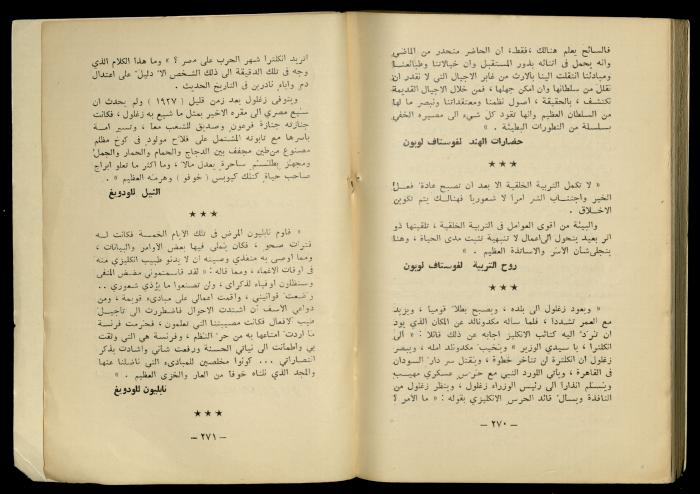 فالسائح يعلم هنالك ،فقط، ان الحاضر منحدر من الماضي
وانه يحمل في اثنائه بذور المستقبل وان خيالاتنا وطبائعنا
ومبادئنا انتقلت الينا بالارث من غابر الاجيال التي لا نقدر ان
نفلت من سلطانها وان امكن جهلها ، فمن خلال الاجيال القديمة
تكتشف ، بالحقيقة ، اصول نظمنا ومعتقداتنا وتبصر ما لها
من السلطان العظيم وانها تقود كل شيء الى مصيره الخفي
بسلسلة من التطورات البطيئة . »
حضارات الهند لغوستاف لوبون
★★★
« لا تكمل التربية الخلقية الا بعد ان تصبح عادة فعل
الخير واجتناب الشر امرا لا شعوريا فهنالك يتم تكوين
الاخلاق .
والبيئة من اقوى العوامل في التربية الخلقية ، تلقينها ذو
اثر بعيد يتحول الى اعمال لا تنبيهية تثبت مدى الحياة ، وهنا
يتجلى شأن الأسر والاساتذة العظيم . »
روح التربية لغوستاف لوبون
★★★
« ويعود زغلول الى بلده ، ويصبح بطلا قوميا ، ويزيد
مع العمر تشددا ، فلما سأله مكدونالد عن المكان الذي يود
ان ترد اليه كتائب الانكليز اجابه عن ذلك قائلا : « الى
انكلترا ، يا سيدي الوزير » وتخيب مكدونلد امله ، ويبصر
زغلول ان انكلترة لن تتأخر خطوة ، ويقتل سردار السودان
في القاهرة ، ويأتي اللورد النبي مع حرس عسكري مهيب
ويسلم انذارا الى رئيس الوزراء زغلول ، وينظر زغلول من
النافذة ويسأل قائد الحرس الانكليزي بقوله : « ما الامر ؟
— ٢٧٠ —
اتريد انكلترا شهر الحرب على مصر ؟ » وما هذا الكلام الذي
وجه في تلك الدقيقة الى ذلك الشخص الا دليل على اعتدال
دم وإباء نادرين في التاريخ الحديث .
ويتوفى زغلول بعد زمن قليل ( ١٩٢٧ ) ولم يحدث ان
شيع مصري الى مقره الاخير بمثل ما شيع به زغلول ، فكانت
جنازته جنازة فرعون وصديق للشعب معا ، وتسير امة
بأسرها مع تابوته المشتمل على فلاح مولود في كوخ مظلم
مصنوع من طين مجفف بين الدجاج والحمام والحمار والجمل
ومجهز بطلسم ساحرة يعدل مالا ، وما اكثر ما تعلو ابراج
صاحب حياة كتلك كيوبس ( خوفو ) وهرمه العظيم . »
النيل للودويغ
★★★
« قاوم نابليون المرض في تلك الايام الخمسة فكانت له
فترات صحو ، فكان يملي فيها بعض الاوامر والبيانات ،
ومما اوصى به منفذي وصيته ان لا يدنو طبيب انكليزي منه
في اوقات الاغماء ، ومما قاله : « لقد قاسمتموني مضض المنفى
وستظلون اوفياء لذكراي ، ولن تصنعوا ما يؤذي شعوري ..
وضعت قوانيني ، واقمت اعمالي على مبادىء قويمة ، ومن
دواعي الاسف ان اشتدت الاحوال فاضطررت الى تأجيل
طيب الافعال فكانت مصيبتنا التي تعلمون ، فحرمت فرنسة
ما اردت امتاعها به من حر النظم ، وفرنسة هي التي وثقت
بي واطمأنت الى نياتي الحسنة ورفعت شأني واشادت بذكر
انتصاراتي ... كونوا مخلصين للمبادىء التي ناضلنا عنها
والمجد الذي نلناه خوفا من العار والخزي العظيم . »
نابليون للودويغ
★★★
— ٢٧١ —